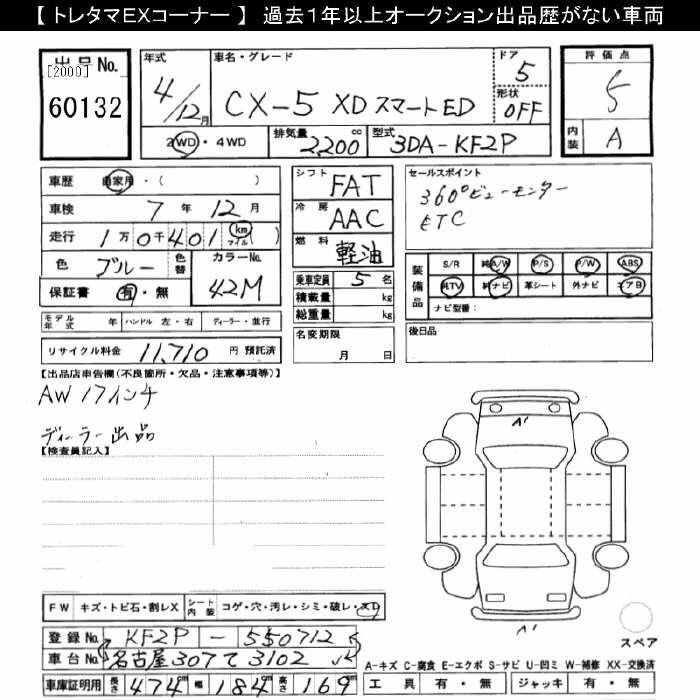 【 トレタマEXコーナー 】 過去1年以上オークション出品歴がない車両
出品No. [2000] 60132
年式 4/12月
車名・グレード CX-5 XD スマートED
ドア 5
形状 OFF
2WD・4WD
排気量 2200 cc
型式 3DA-KF2P
評価点 5
内装 A
車歴 自家用・( )
車検 7年 12月
走行 1万0千401 (km マイル) ( )
色 ブルー 色替 カラーNo. 42M
保証書 有・無
モデル年式 年 ハンドル 左・右 ディーラー・並行
リサイクル料金 11,710 円 預託済
シフト FAT
冷房 AAC
燃料 軽油
乗車定員 5 名
積載量 kg
総重量 kg
名変期限 月 日
セールスポイント
360°ビューモニター
ETC
装備品 S/R 純A/W P/S P/W ABS
純TV 純ナビ 革シート 外ナビ エアB
ナビ型番:
後日品
【出品店車告欄(不良箇所・欠品・注意事項等)】
AW 17インチ
ディーラー出品
【検査員記入】
A1
A1
FW キズ・トビ石・割レX シート内装 コゲ・穴・汚レ・シミ・破レ・スレ
登録No. KF2P - 550712
車台No. 名古屋307て3102
車庫証明用 長さ 474 幅 184 高さ 169
スペア
A-キズ C-腐食 E-エクボ S-サビ U-凹ミ W-補修 XX-交換済
工具 有・無 ジャッキ 有・無